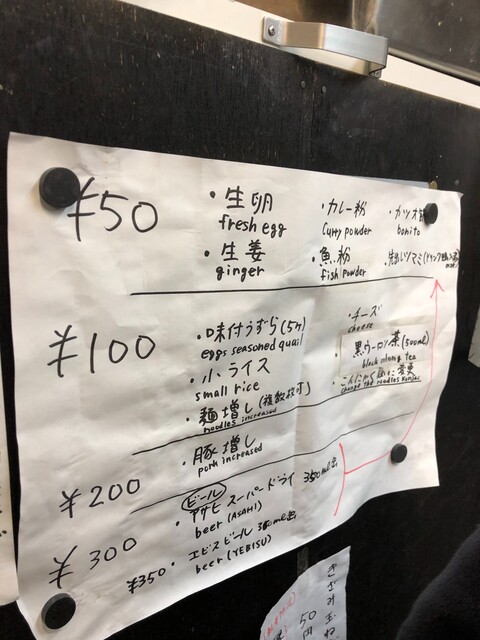 ¥50
・生卵
fresh egg
・カレー粉
Curry powder
・カツオ
bonito
・生姜
ginger
・魚粉
fish powder
ツマミ
¥100
・味付うずら(5ヶ)
eggs seasoned quail
・小ライス
small rice
・麺増し(複数枚可)
noodles increased
・チーズ
cheese
・黒ウーロン茶(500ml)
black oolong tea
・こんにゃく麺に変更
change the noodles konjac
¥200
・豚増し
pork increased
¥300
ビール
・アサヒ スーパードライ 350ml缶
beer (ASAHI)
¥350
・エビスビール 350ml缶
beer (YEBISU)
きざみ玉ね
50円